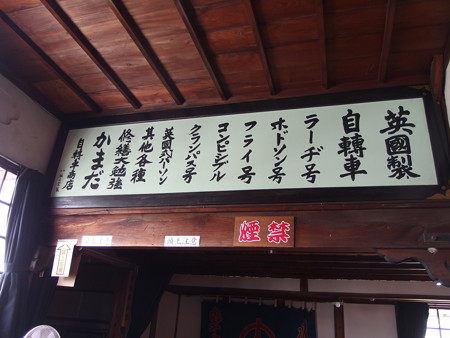 英國製
自轉車
ラーヂ号
ホドソン号
フライ号
コンビンデル
クランパス号
英國式パーソン
其他各種
修繕大勉強
かまだ
自轉車商店
禁煙
頭上注意